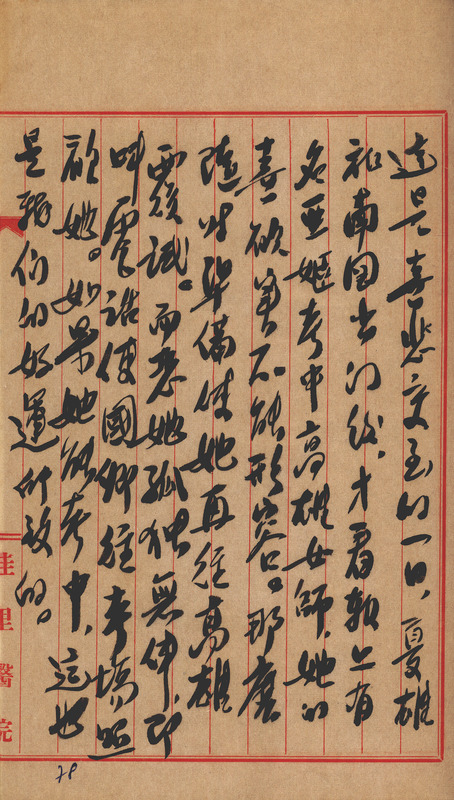 這是喜悲交至的一日,夏雄
和南圖出门後,才看報上有
名亞姬考中高雄女師,她的
喜欲笑不能形容。那麼
隨时準備使她再往高雄
覆試。而恐她孤独無伴,即
叫電話使國卿往考場照
顧她。如果她能考中,這也
是我們的好運所致的。
佳里醫院
78